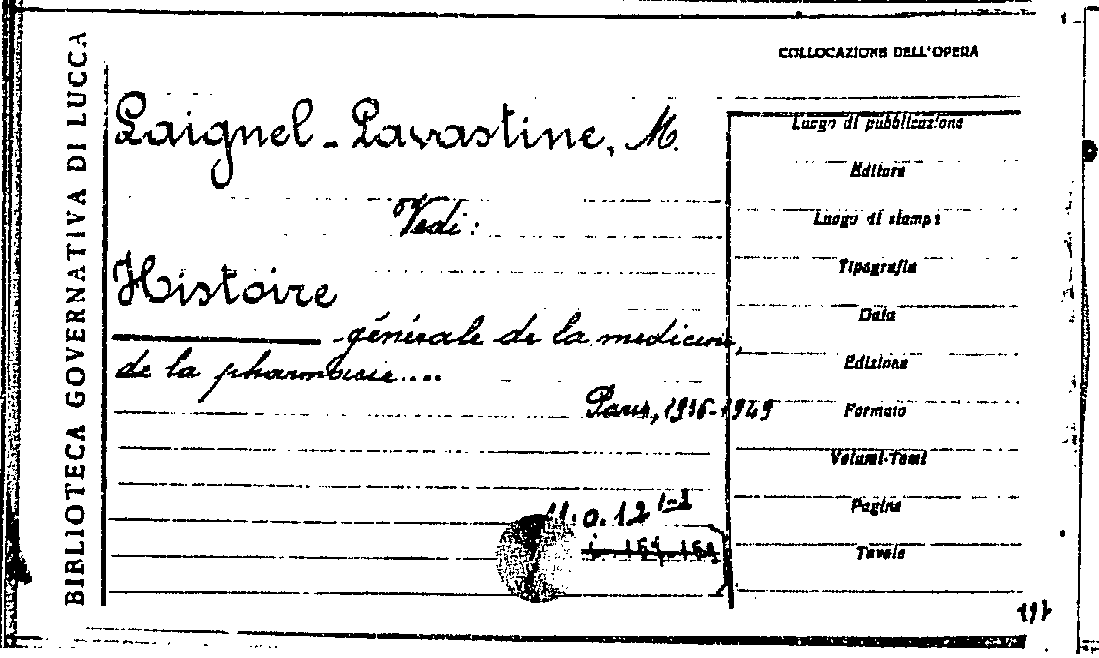 BIBLIOTECA GOVERNATIVA DI LUCCA
COLLOCAZIONE DELL'OPERA
Laignel-Lavastine, M.
Vedi:
Histoire
générale de la medicine,
de la pharmacie....
Paris, 1936-1949
Luogo di pubblicazione
Editore
Luogo di stampa
Tipografia
Data
Edizione
Formato
Volumi-Tomi
Pagine
Tavole